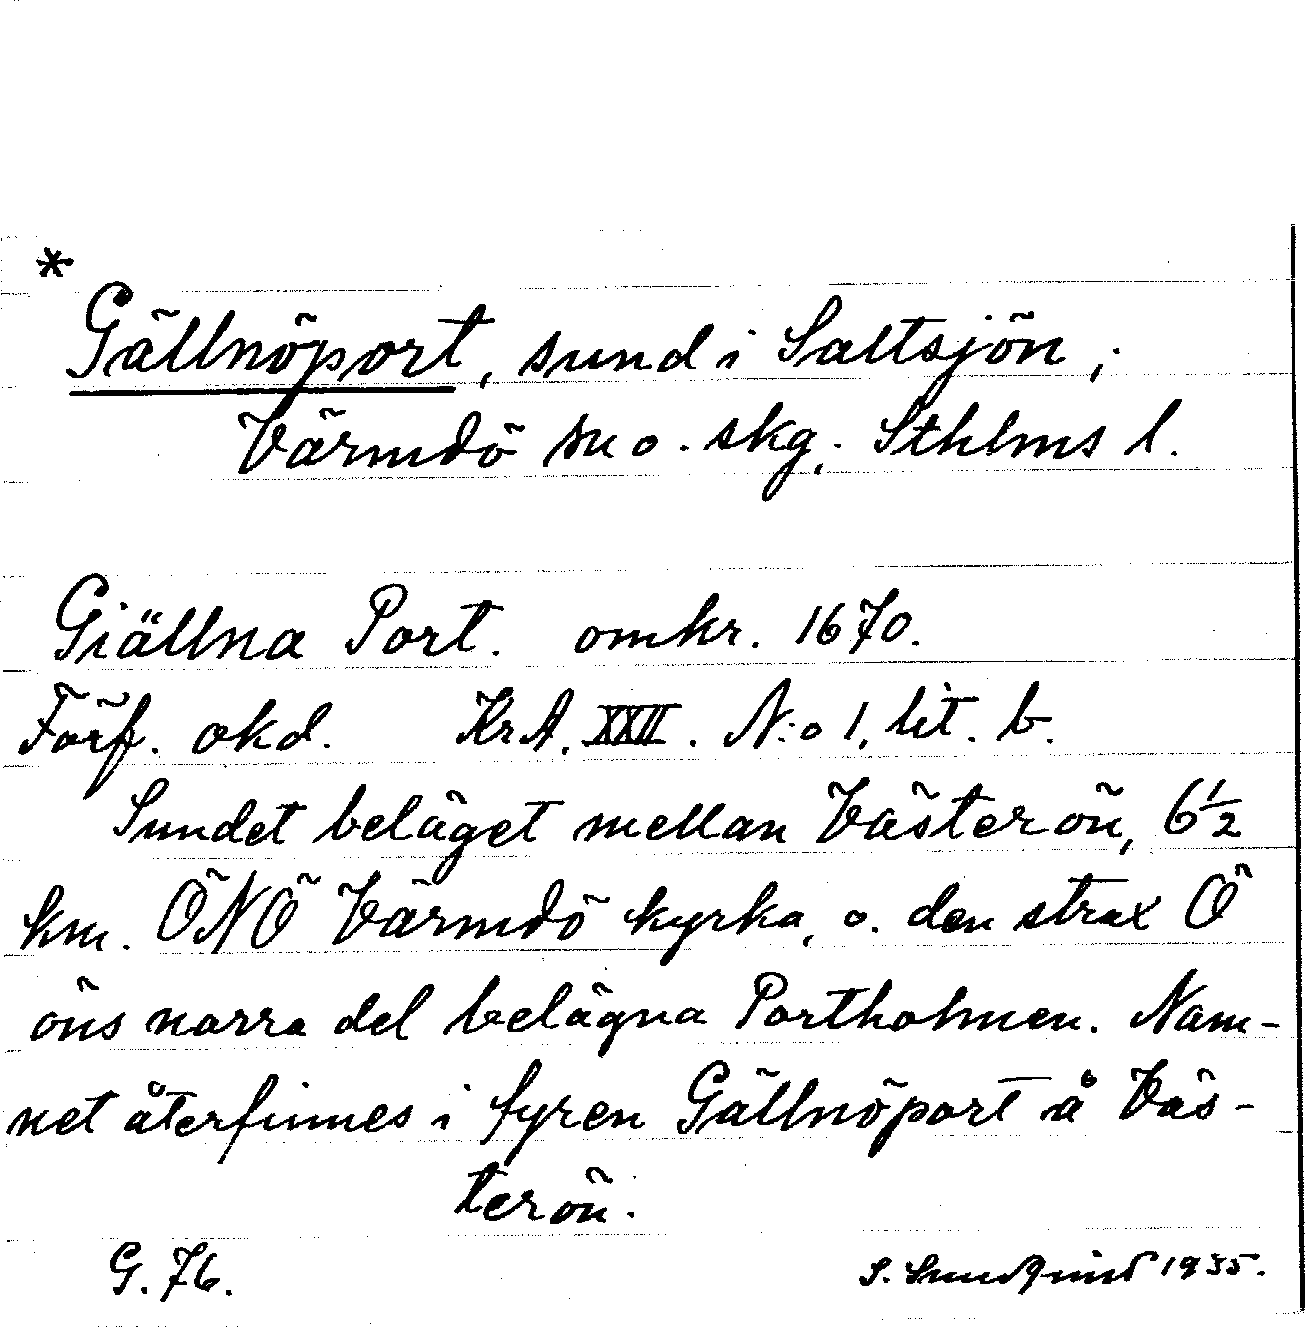 *
Gällnöport, sund i Saltsjön,
Värmdö sn o. skg. Sthlms l.
Giällna Port. omkr. 1670.
Förf. okd. KrA. XXII. N:o 1, lit. b.
Sundet beläget mellan Västerön, 6½
km. ÖNÖ Värmdö kyrka, o. den strax Ö
öns norra del belägna Portholmen. Nam-
net återfinnes i fyren Gällnöport å Väs-
terön.
G. 76. S. Sundquist 1935.